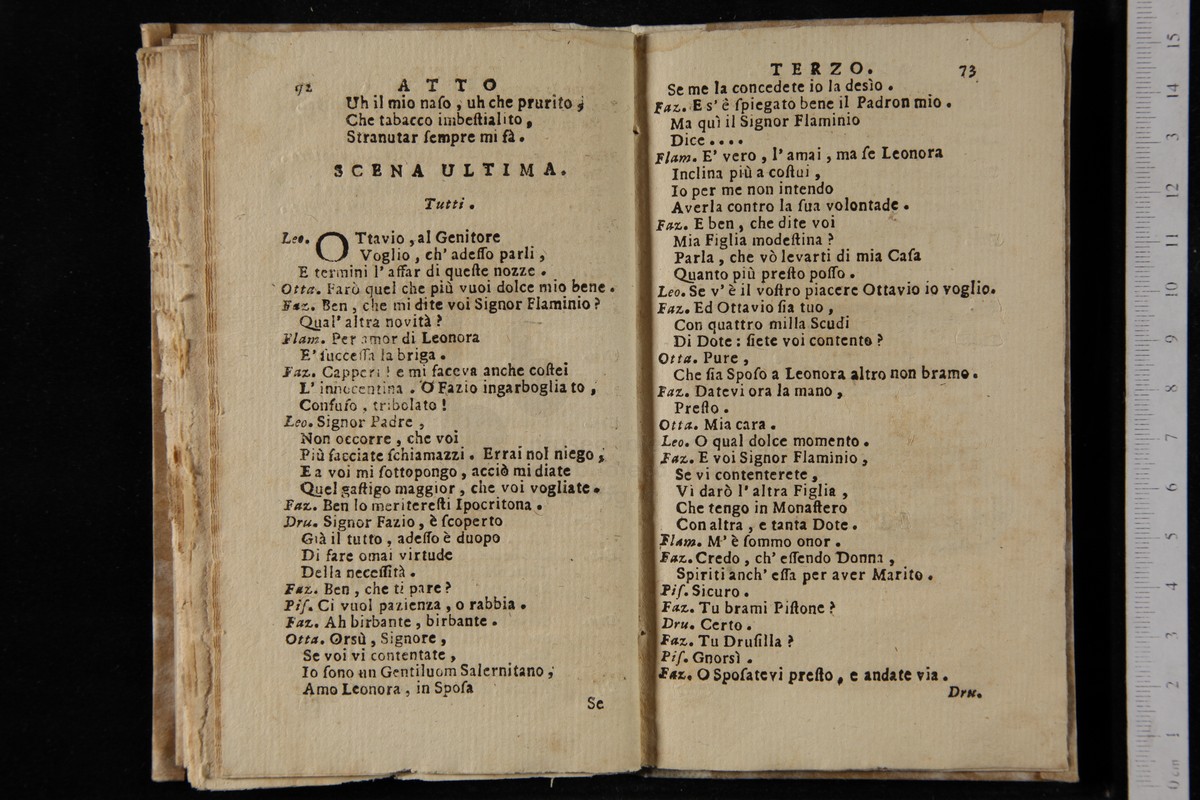 72 ATTO
Uh il mio naſo , uh che prurito ;
Che tabacco imbeſtialito ,
Stranutar ſempre mi fà .
SCENA ULTIMA.
Tutti .
Leo. OTtavio , al Genitore
Voglio , ch' adeſſo parli ,
E termini l' affar di queſte nozze .
Otta. Farò quel che più vuoi dolce mio bene .
Faz. Ben , che mi dite voi Signor Flaminio ?
Qual' altra novità ?
Flam. Per amor di Leonora
E' ſucceſſa la briga .
Faz. Capperi ! e mi faceva anche coſtei
L' innocentina . O Fazio ingarbogliato ,
Confuſo , tribolato !
Leo. Signor Padre ,
Non occorre , che voi
Più facciate ſchiamazzi . Errai nol niego ;
E a voi mi ſottopongo , acciò mi diate
Quel gaſtigo maggior , che voi vogliate .
Faz. Ben lo meritereſti Ipocritona .
Dru. Signor Fazio , è ſcoperto
Già il tutto , adeſſo è duopo
Di fare omai virtude
Della neceſſità .
Faz. Ben , che ti pare ?
Piſ. Ci vuol pazienza , o rabbia .
Faz. Ah birbante , birbante .
Otta. Orsù , Signore ,
Se voi vi contentate ,
Io ſono un Gentiluom Salernitano ;
Amo Leonora , in Spoſa
Se
TERZO. 73
Se me la concedete io la desìo .
Faz. E s' è ſpiegato bene il Padron mio .
Ma quì il Signor Flaminio
Dice . . . .
Flam. E' vero , l' amai , ma ſe Leonora
Inclina più a coſtui ,
Io per me non intendo
Averla contro la ſua volontade .
Faz. E ben , che dite voi
Mia Figlia modeſtina ?
Parla , che vò levarti di mia Caſa
Quanto più preſto poſſo .
Leo. Se v' è il voſtro piacere Ottavio io voglio.
Faz. Ed Ottavio ſia tuo ,
Con quattro milla Scudi
Di Dote : ſiete voi contento ?
Otta. Pure ,
Che ſia Spoſo a Leonora altro non bramo .
Faz. Datevi ora la mano ,
Preſto .
Otta. Mia cara .
Leo. O qual dolce momento .
Faz. E voi Signor Flaminio ,
Se vi contenterete ,
Vi darò l' altra Figlia ,
Che tengo in Monaſtero
Con altra , e tanta Dote .
Flam. M' è ſommo onor .
Faz. Credo , ch' eſſendo Donna ,
Spiriti anch' eſſa per aver Marito .
Piſ. Sicuro .
Faz. Tu brami Piſtone ?
Dru. Certo .
Faz. Tu Druſilla ?
Piſ. Gnorsì .
Faz. O Spoſatevi preſto , e andate via .
Dru.